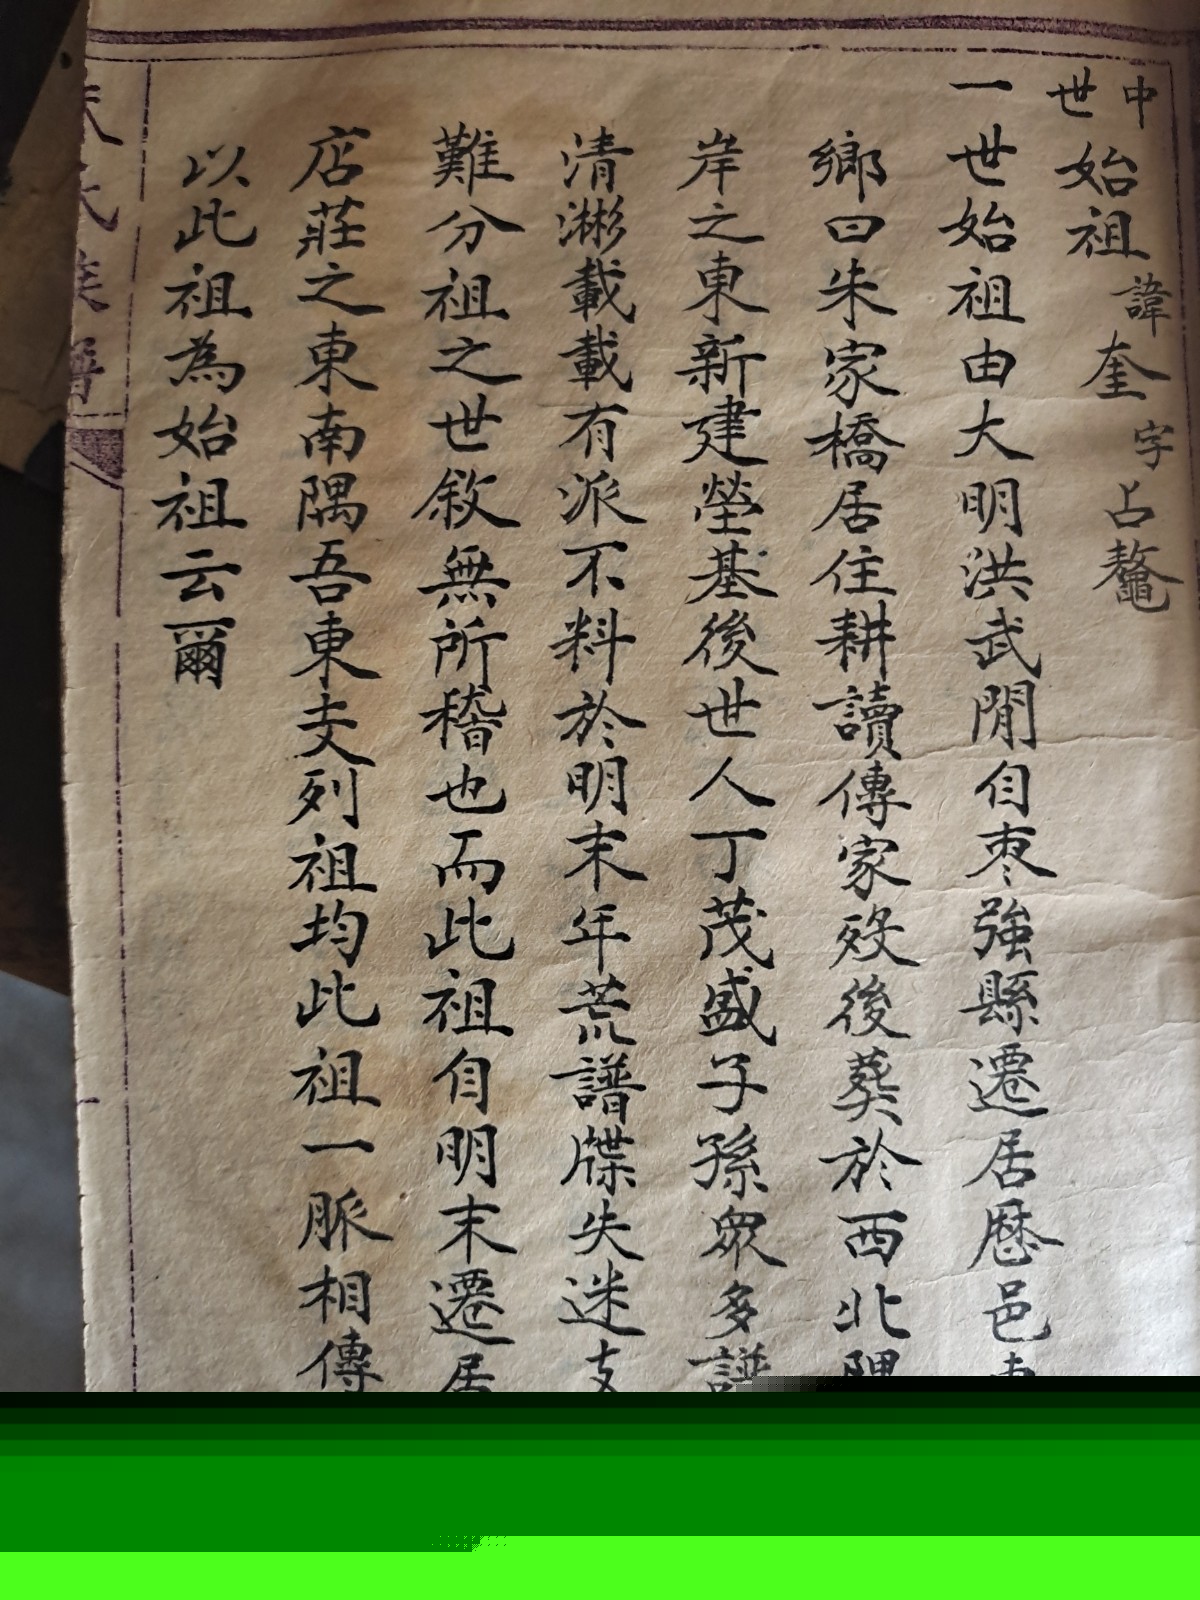 中世始祖諱奎字占鼇
一世始祖由大明洪武閒自枣強縣遷居曆邑東
鄉曰朱家橋居住耕讀傳家歿後葵於西北隅
岸之東新建塋基後世人丁茂盛子孫眾多譜
清漋載載有派不料於明末年荒譜牒失迷支
難分祖之世敘無所稽也而此祖自明末遷居
店莊之東南隅吾東支列祖均此祖一脈相傳
以此祖為始祖云爾
氏族譜